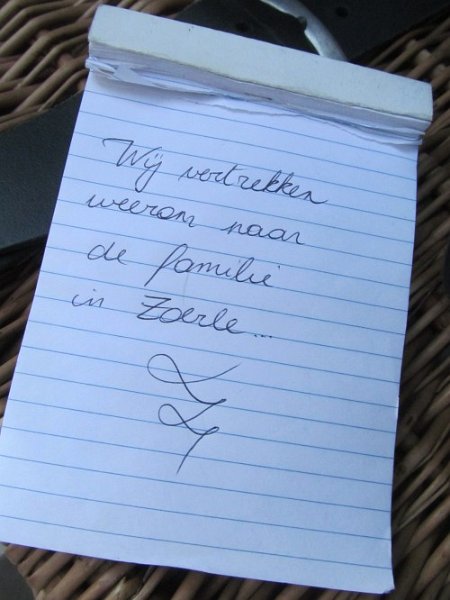 Wij vertrekken
weerom naar
de familie
in Zoerle...